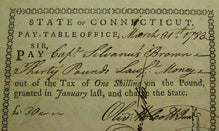 STATE OF CONNECTICUT.
PAY-TABLE OFFICE, March 31st 1783
SIR,
PAY Capt Silvanus Brown
Thirty Pounds Law'l Money
out of the Tax of One Shilling on the Pound,
granted in January last, and charge the State.